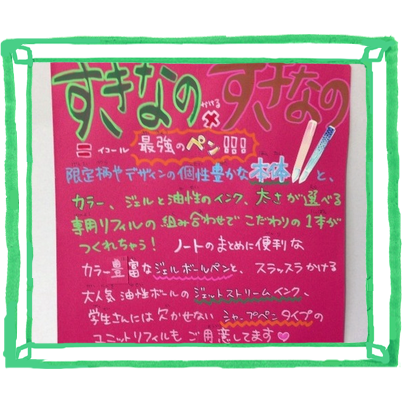 すきなの×すきなの
かける
＝イコール 最強のペン!!!
限定柄やデザインの個性豊かな本体と、
カラー、ジェルと油性のインク、太さが選べる
専用リフィルの組み合わせでこだわりの1本が
つくれちゃう! ノートのまとめに便利な
カラー豊富なジェルボールペンと、スラッスラかける
大人気油性ボールのジェットストリームインク、
学生さんには欠かせないシャープペンタイプの
ユニットリフィルもご用意してます♡